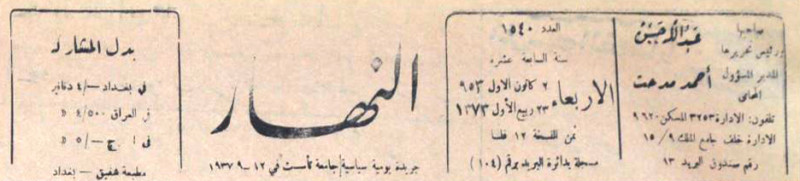 صاحبها
ورئيس تحريرها
المدير المسؤول
أحمد مدحت
المحامي
تلفون: الادارة ٣٢٥٣ المسكن ٩٦٢٠
الادارة خلف جامع الملك ٩ / ١٥
رقم صندوق البريد ١٣
العدد ١٥٤٠
سنة السابعة عشرة
الاربعاء
٢ كانون الاول ٩٥٣
٢٣ ربيع الأول ١٣٧٣
ثمن النسخة ١٢ فلسا
مسجلة بدائرة البريد برقم (١٠٤)
النهار
جريدة يومية سياسية جامعة تأسست في ١٢-٩-١٩٣٧
بدل المشاركة
في بغداد -/٤ دنانير
في العراق ٤/٥٠٠ د
مطبعة شفيق - بغداد